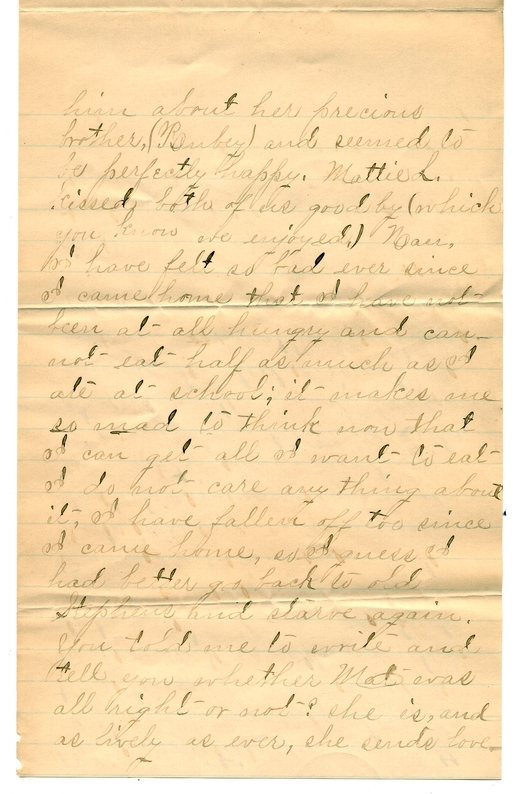 him about her precious
brother, (Rubey) and seemed to
be perfectly happy. Mattie L.
kissed both of us good by (which
you know we enjoyed.) Nan,
I have felt so bad ever since
I came home that I have not
been at all hungry and can-
not eat half as much as I
ate at school; it makes me
so mad to think now that
I can get all I want to eat
I do not care any thing about
it, I have fallen off too since
I came home, so I guess I
had better go back to old
Stephens and starve again.
You told me to write and
tell you whether Mat was
all right or not? she is, and
as lively as ever, she sends love